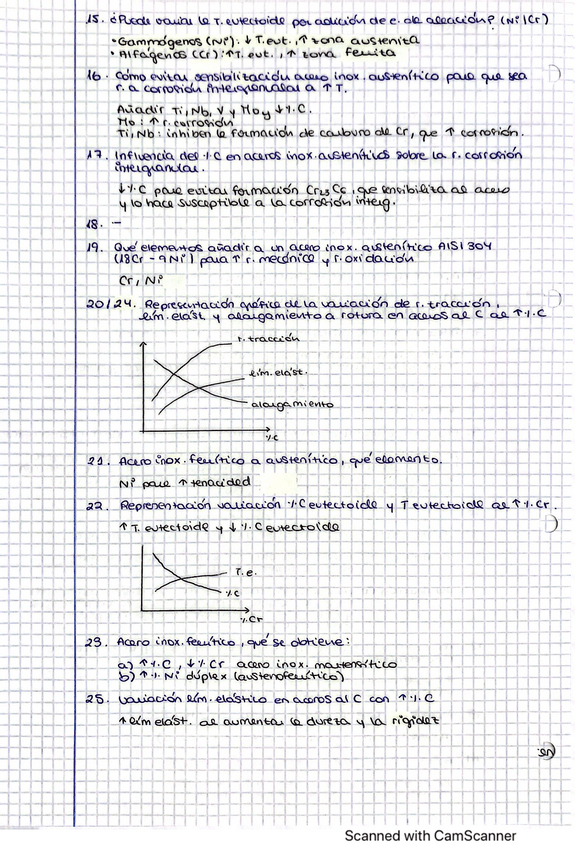 15. ¿Puede variar la T. eutectoide por adición de e. de aleación? (Ni/Cr)
• Gammágenos (Ni): ↓ T. eut., ↑ zona austenita
• Alfágenos (Cr): ↑T. eut., ↑ zona ferrita
16. Cómo evitar sensibilización acero inox. austenítico para que sea
r. a corrosión intergranular a ↑ T.
Añadir Ti, Nb, V y Mo y ↓%C.
Mo: ↑ r. corrosión
Ti, Nb: inhiben la formación de carburo de Cr, que ↑ corrosión.
17. Influencia del %C en aceros inox. austeníticos sobre la r. corrosión
intergranular.
↓%C para evitar formación Cr23C6, que sensibiliza al acero
y lo hace susceptible a la corrosión interg.
18. —
19. Qué elementos añadir a un acero inox. austenítico AISI 304
(18Cr - 9Ni) para ↑ r. mecánica y r. oxidación
Cr, Ni
20/24. Representación gráfica de la variación de r. tracción,
lím. elást. y alargamiento a rotura en aceros al C al ↑%C
r. tracción
lím. elást.
alargamiento
%C
21. Acero inox. ferrítico a austenítico, qué elemento.
Ni para ↑ tenacidad
22. Representación variación %C eutectoide y T eutectoide al ↑%Cr.
↑ T. eutectoide y ↓ %C eutectoide
T.e.
%C
%Cr
23. Acero inox. ferrítico, qué se obtiene:
a) ↑%C, ↓%Cr acero inox. martensítico
b) ↑%Ni dúplex (austenoferrítico)
25. Variación lím. elástico en aceros al C con ↑%C
↑ lím elást. al aumentar la dureza y la rigidez
Scanned with CamScanner